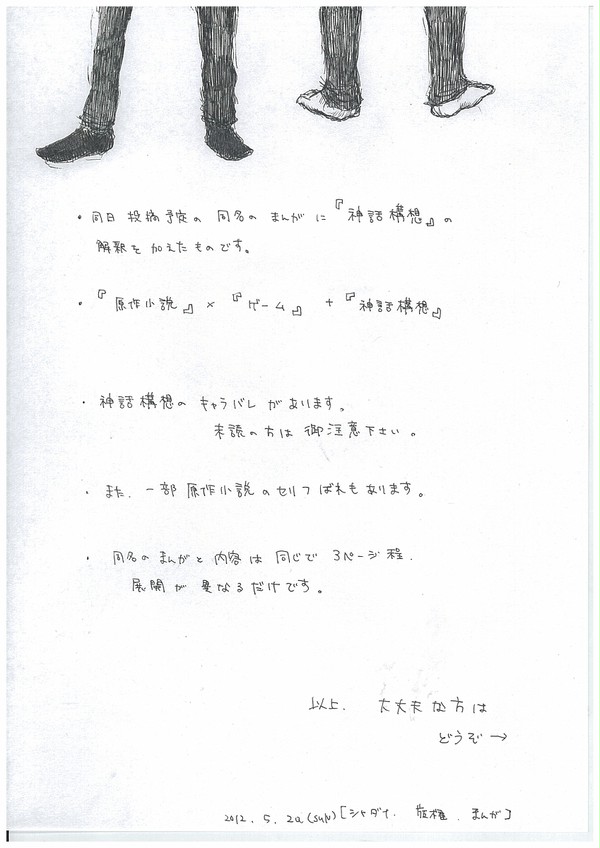 ・同日投稿予定の同名のまんがに『神話構想』の
解釈を加えたものです。
・『原作小説』×『ゲーム』+『神話構想』
・神話構想のキャラバレがあります。
未読の方は御注意下さい。
・また、一部原作小説のセリフばれもあります。
・同名のまんがと内容は同じで3ページ程、
展開が異なるだけです。
以上、大丈夫な方は
どうぞ→
2012.5.20(SUN)[シャダイ、版権、まんが]